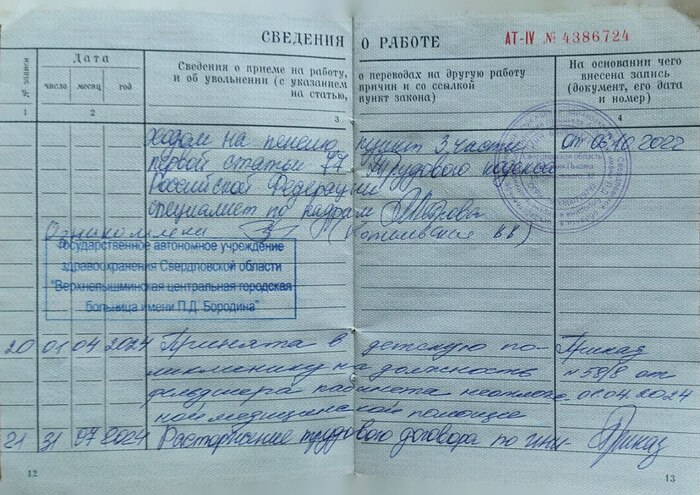 СВЕДЕНИЯ О РАБОТЕ
АТ-IV № 4386724
№ записи
Дата
число месяц год
Сведения о приеме на работу, о переводах на другую работу
и об увольнении (с указанием причин и со ссылкой
на статью, пункт закона)
На основании чего
внесена запись
(документ, его дата
и номер)
1 2 3 4
ходом на пенсию, пункт 3 части от 06.10.2022
первой статьи 77 Трудового кодекса
Российской Федерации
специалист по кадрам
Ознакомлена
государственное автономное учреждение
здравоохранения Свердловской области
"Верхнепышминская центральная городская
больница имени П.Д. Бородина"
20 01 04 2024 Принята в детскую по- Приказ
ликлинику на должность №58/8 от
фельдшера кабинета неотлож- 01.04.2024
ной медицинской помощи
21 31 07 2024 Расторжение трудового договора по ини- Приказ
12
13